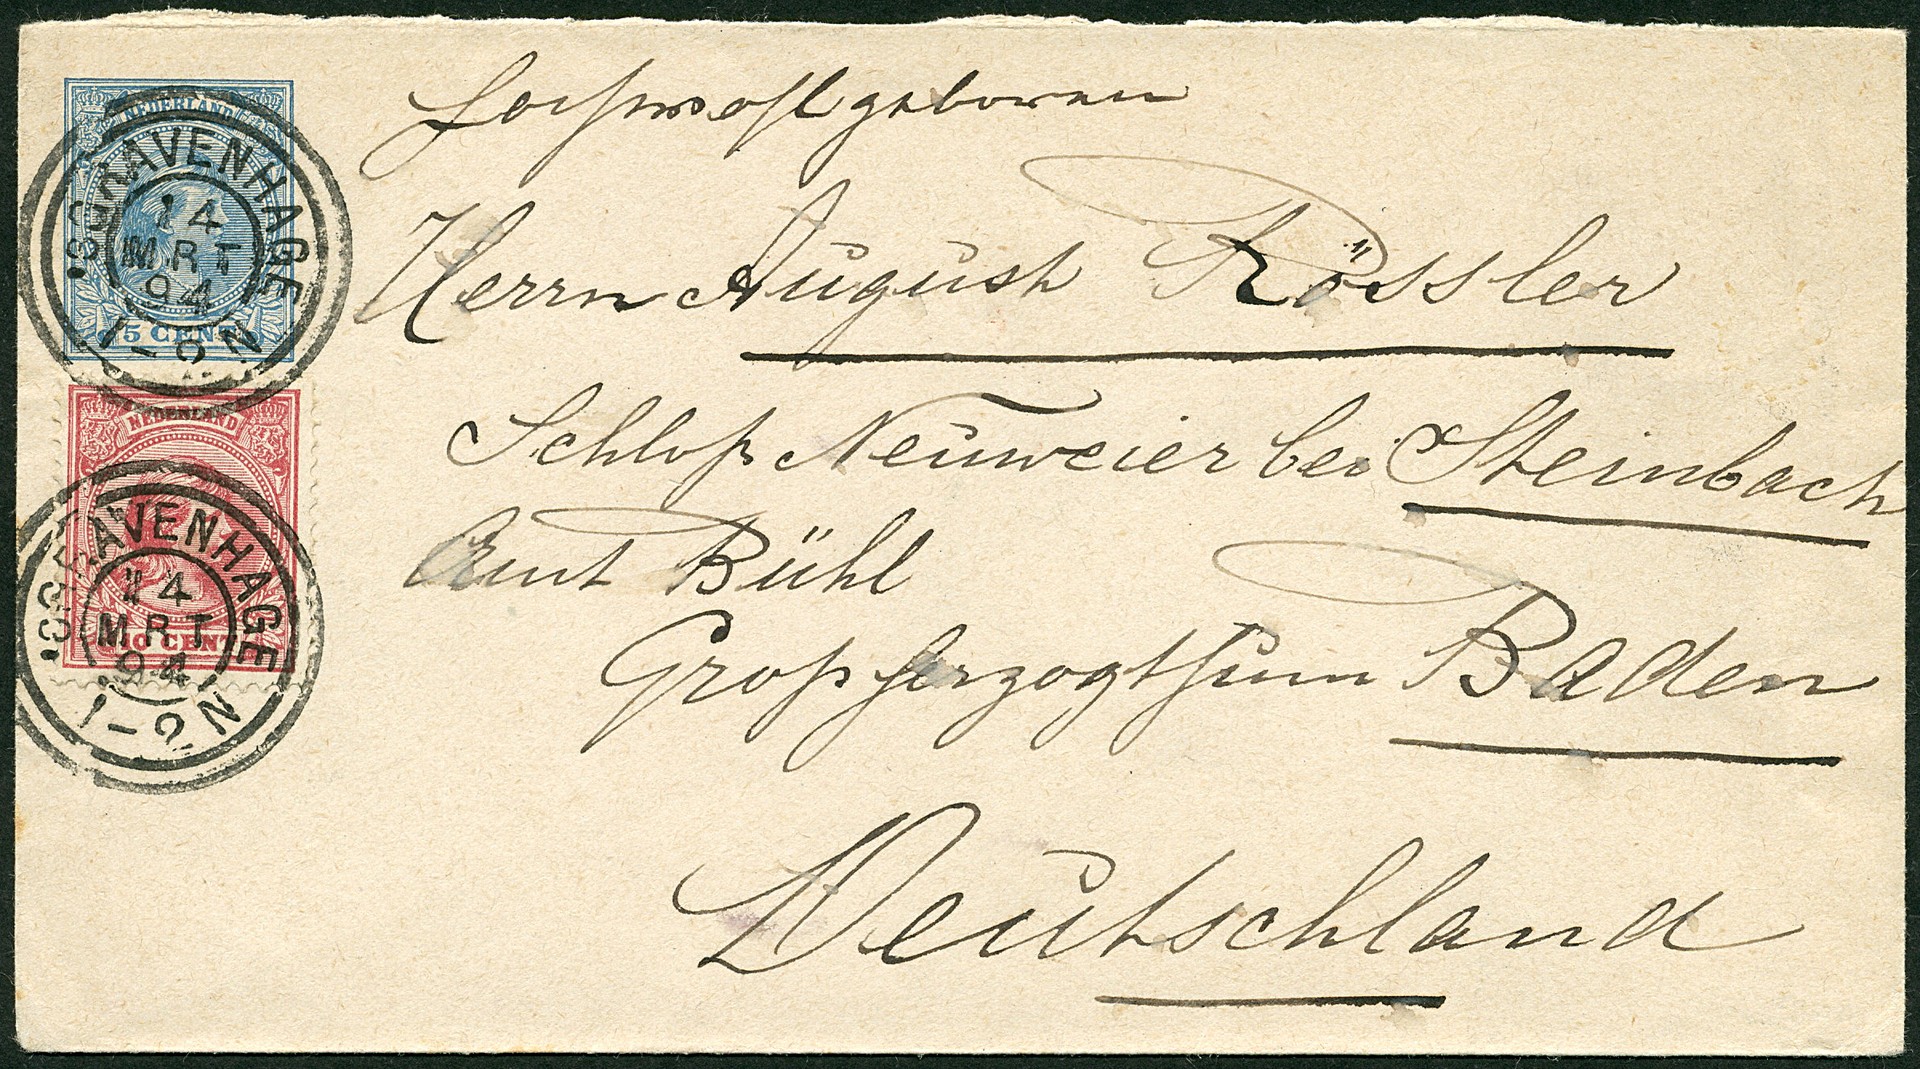 NEDERLAND
5 CENT
'SGRAVENHAGE
14
MRT
94
1-2N
NEDERLAND
10 CENT
'SGRAVENHAGE
14
MRT
94
1-2N
Hochwohlgeboren
Herrn August Rössler
Schloß Neuweier bei Steinbach
Amt Bühl
Großherzogthum Baden
Deutschland